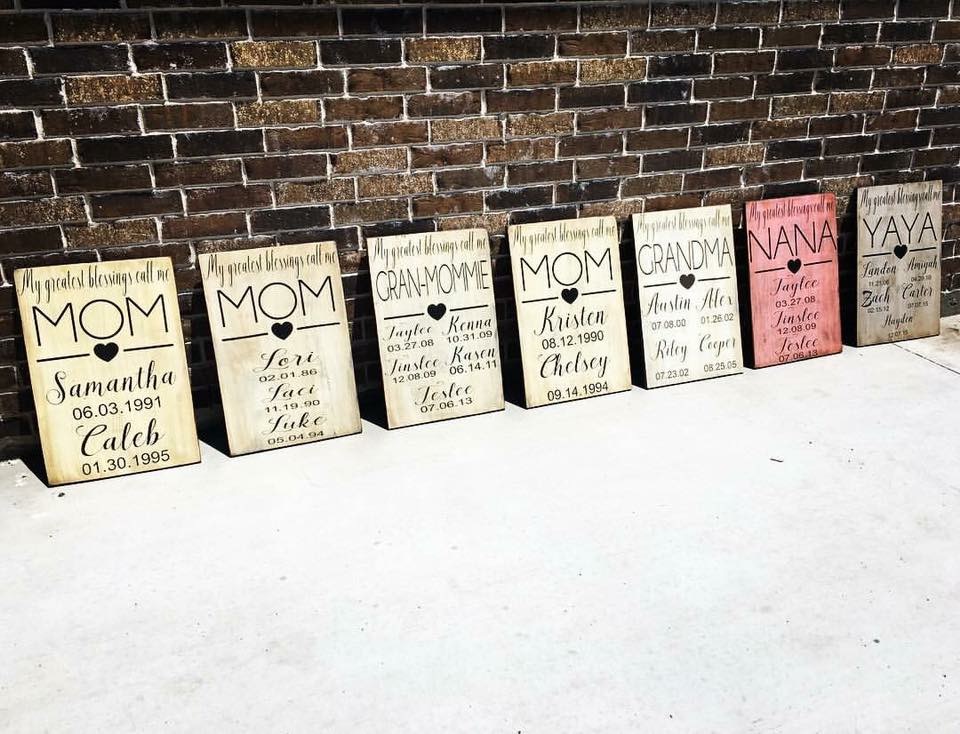 My greatest blessings call me
MOM
Samantha
06.03.1991
Caleb
01.30.1995
My greatest blessings call me
MOM
Lori
02.01.86
Laci
11.19.90
Luke
05.04.94
My greatest blessings call me
GRAN-MOMMIE
Jaylee Kenna
03.27.08 10.31.09
Jinslee Kasen
12.08.09 06.14.11
Jeslee
07.06.13
My greatest blessings call me
MOM
Kristen
08.12.1990
Chelsey
09.14.1994
My greatest blessings call me
GRANDMA
Austin Alex
07.08.00 01.26.02
Riley Cooper
07.23.02 08.25.05
My greatest blessings call me
NANA
Jaylee
03.27.08
Jinslee
12.08.09
Jeslee
07.06.13
My greatest blessings call me
YAYA
Landon Amiyah
Zach Carter
02.15.12
Hayden